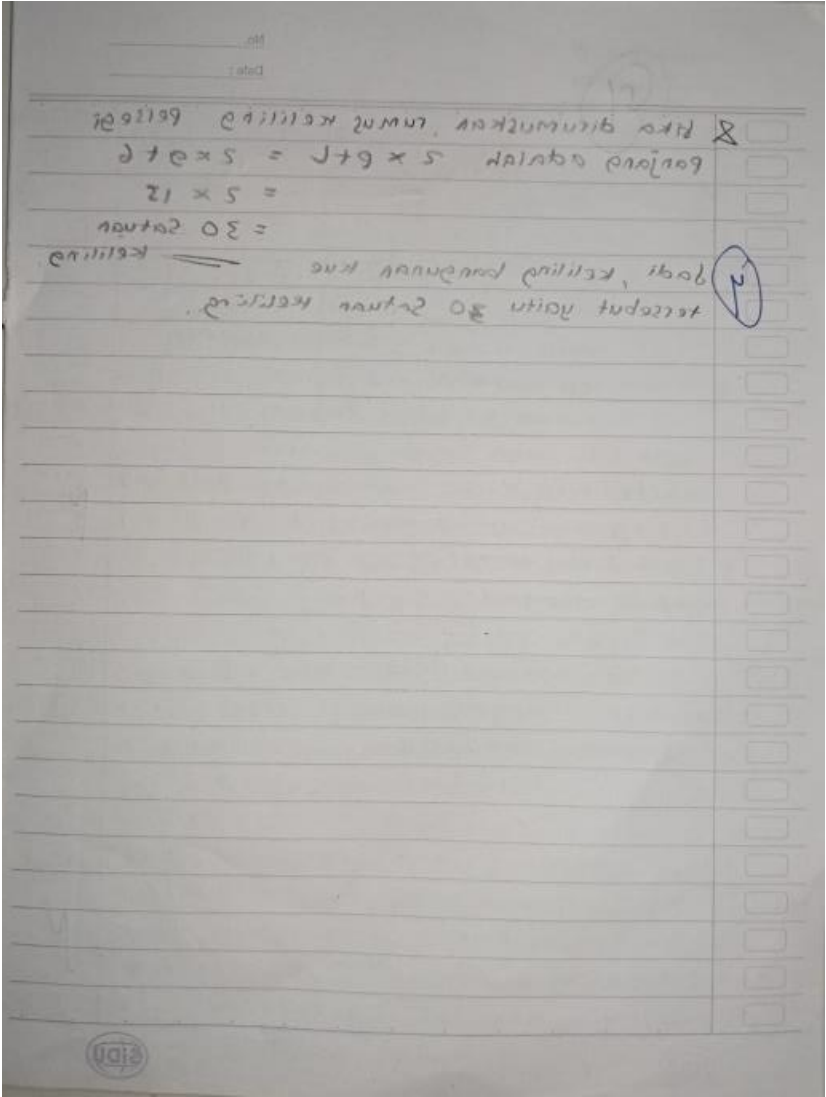 No.
Date:
8 Jika dirumuskan, rumus keliling persegi
panjang adalah 2 x p+l = 2 x 9+6
= 2 x 15
= 30 satuan
keliling
Jadi, keliling bangunan kue
tersebut yaitu 30 satuan keliling.
SiDU